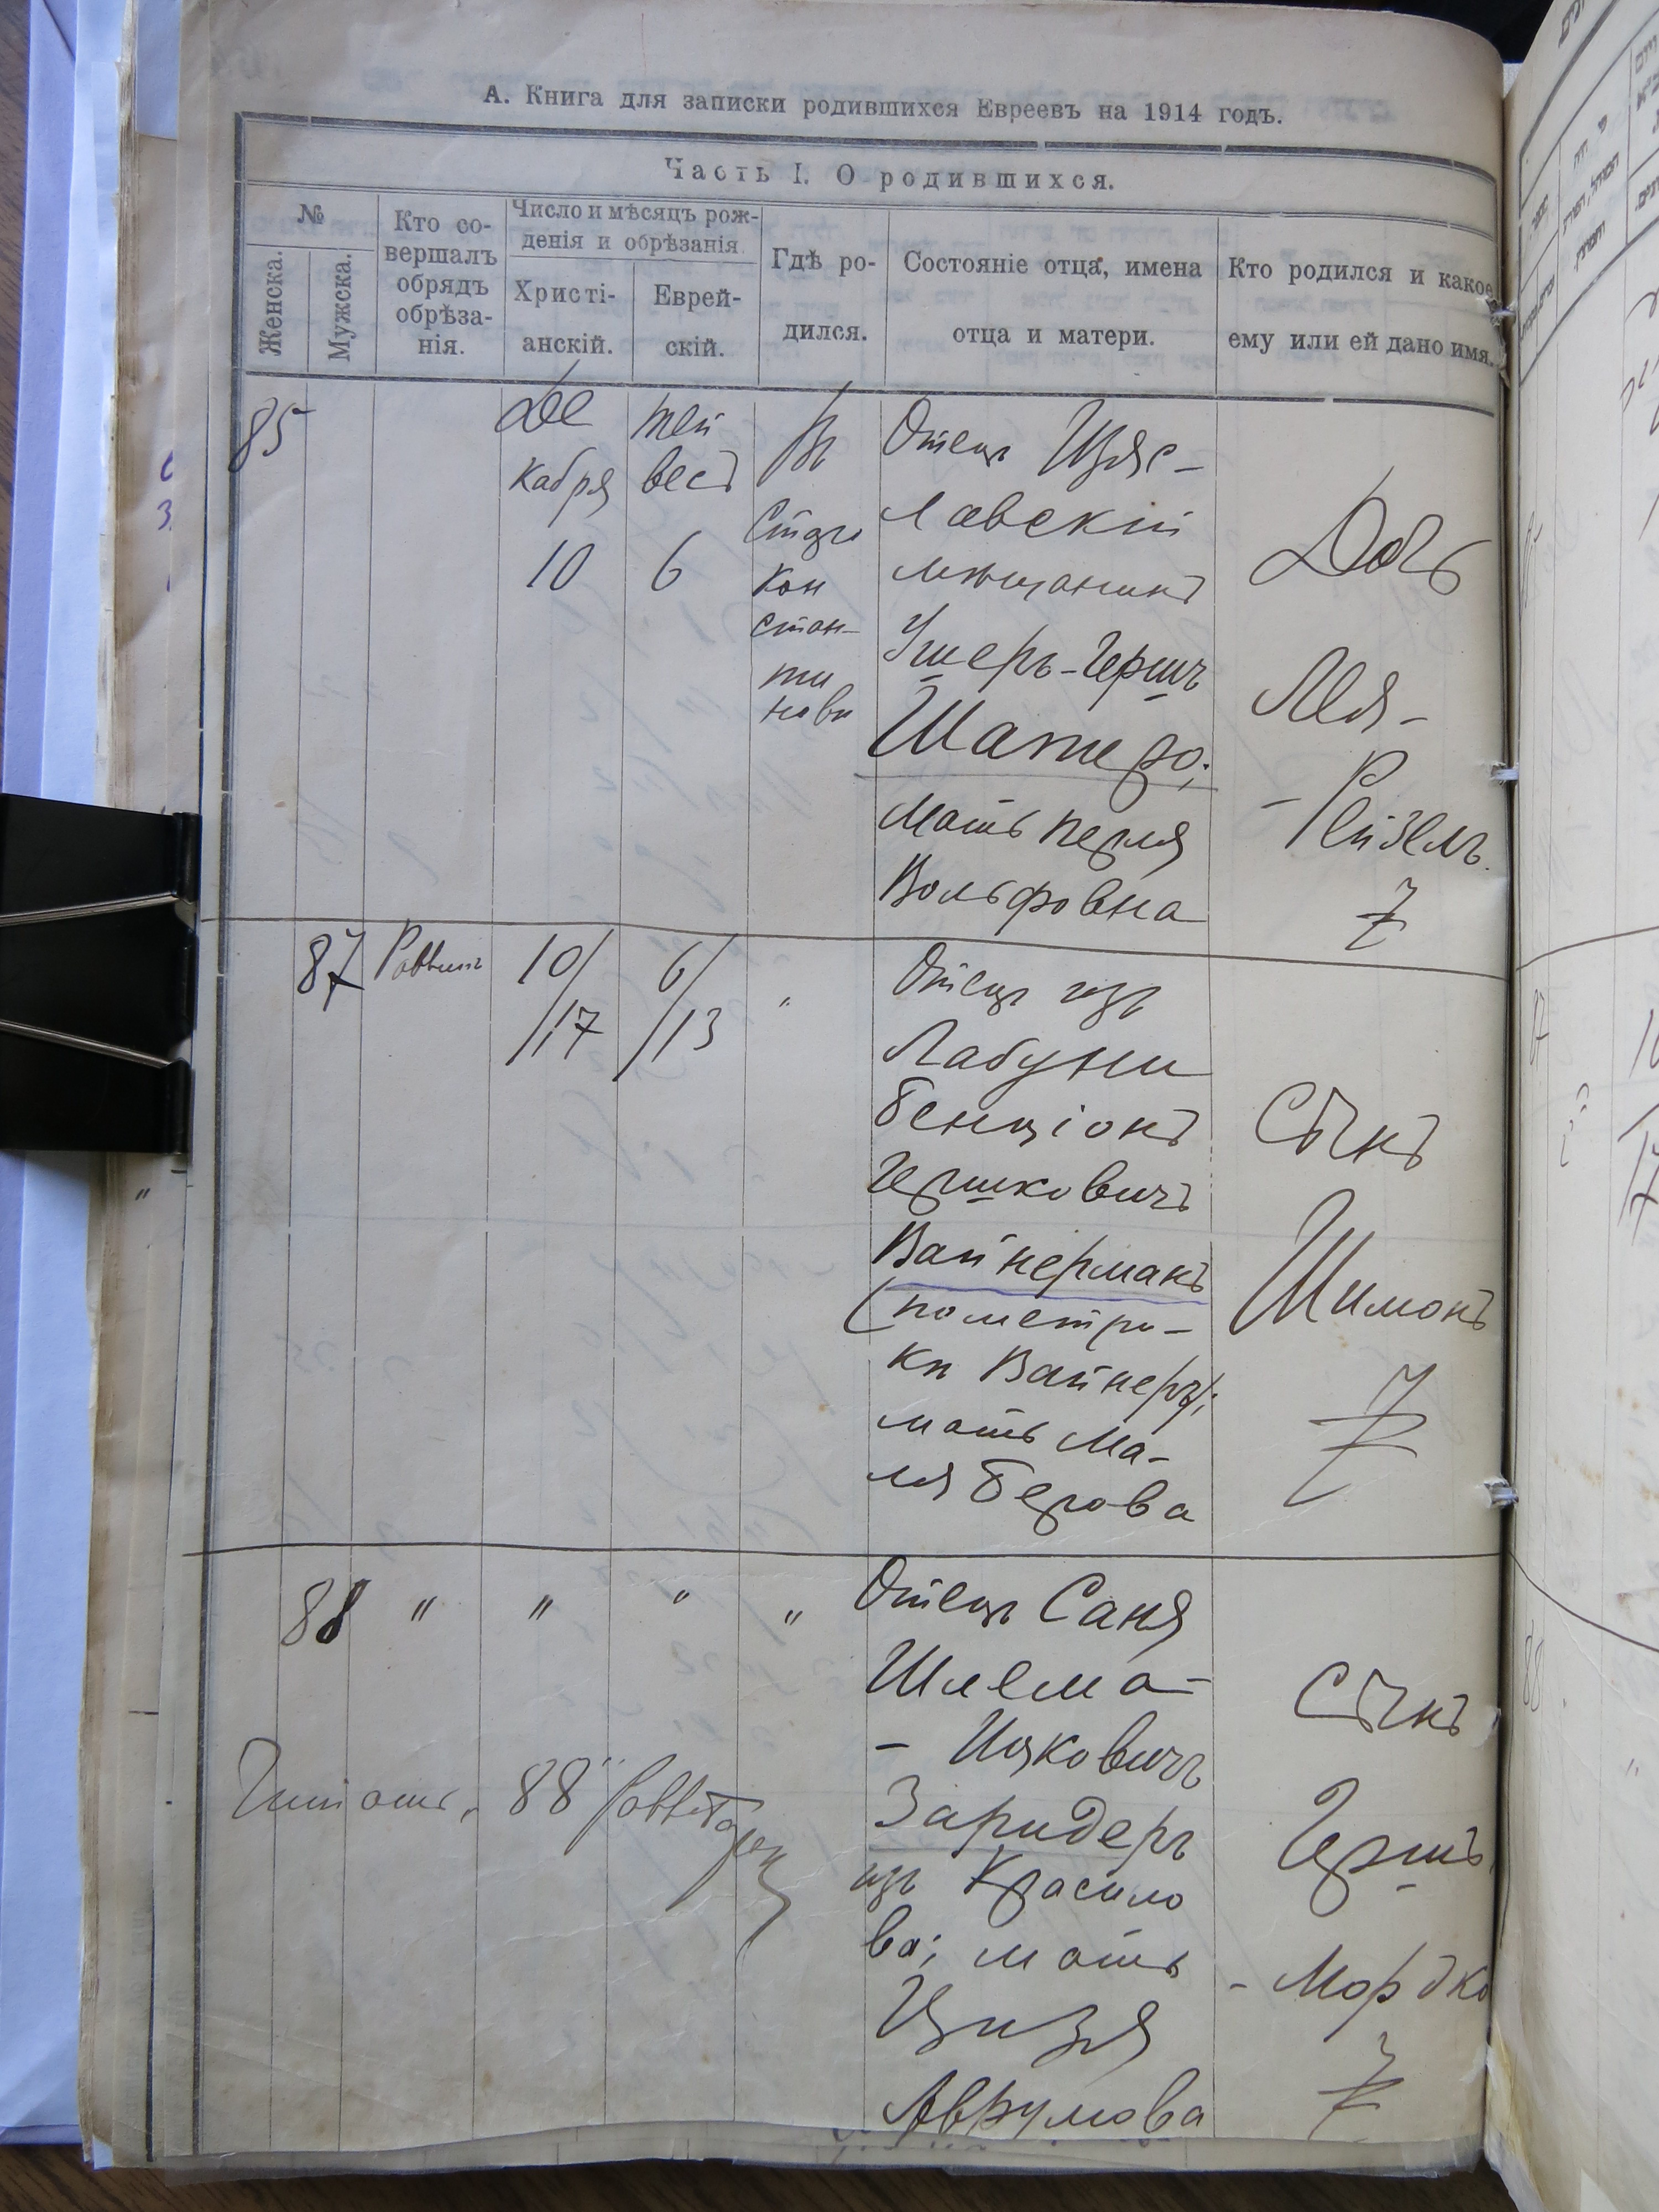 А. Книга для записки родившихся Евреевъ на 1914 годъ.
Часть I. О родившихся.
№
Женска.
Мужска.
Кто со-
вершалъ
обрядъ
обрѣза-
нія.
Число и мѣсяцъ рож-
денія и обрѣзанія.
Христі-
анскій.
Еврей-
скій.
Гдѣ ро-
дился.
Состояніе отца, имена
отца и матери.
Кто родился и какое
ему или ей дано имя.
85
Де
кабря
10
Тей
весъ
6
Въ
Старо
Кон
стан-
ти
новѣ
Отецъ Изяс-
лавскій
мѣщанинъ
Ушеръ-Гершъ
Шатеро;
мать Перля
Вольфовна
Дочь
Лея-
-Рейзель.
7
87
Раввинъ
10/
/17
6/
/13
"
Отецъ изъ
Лабуни
Бенціонъ
Гершковичъ
Вайнерманъ
(по метри-
кѣ Вайнеръ);
мать Ма-
ля Берова
Сынъ
Шимонъ
7
88
"
"
"
"
Отецъ Саня
Шлема-
- Ицковичъ
Заридеръ
изъ Красило
ва; мать
Цизя
Аврумова
Сынъ
Гершъ
- Мордко
7
88